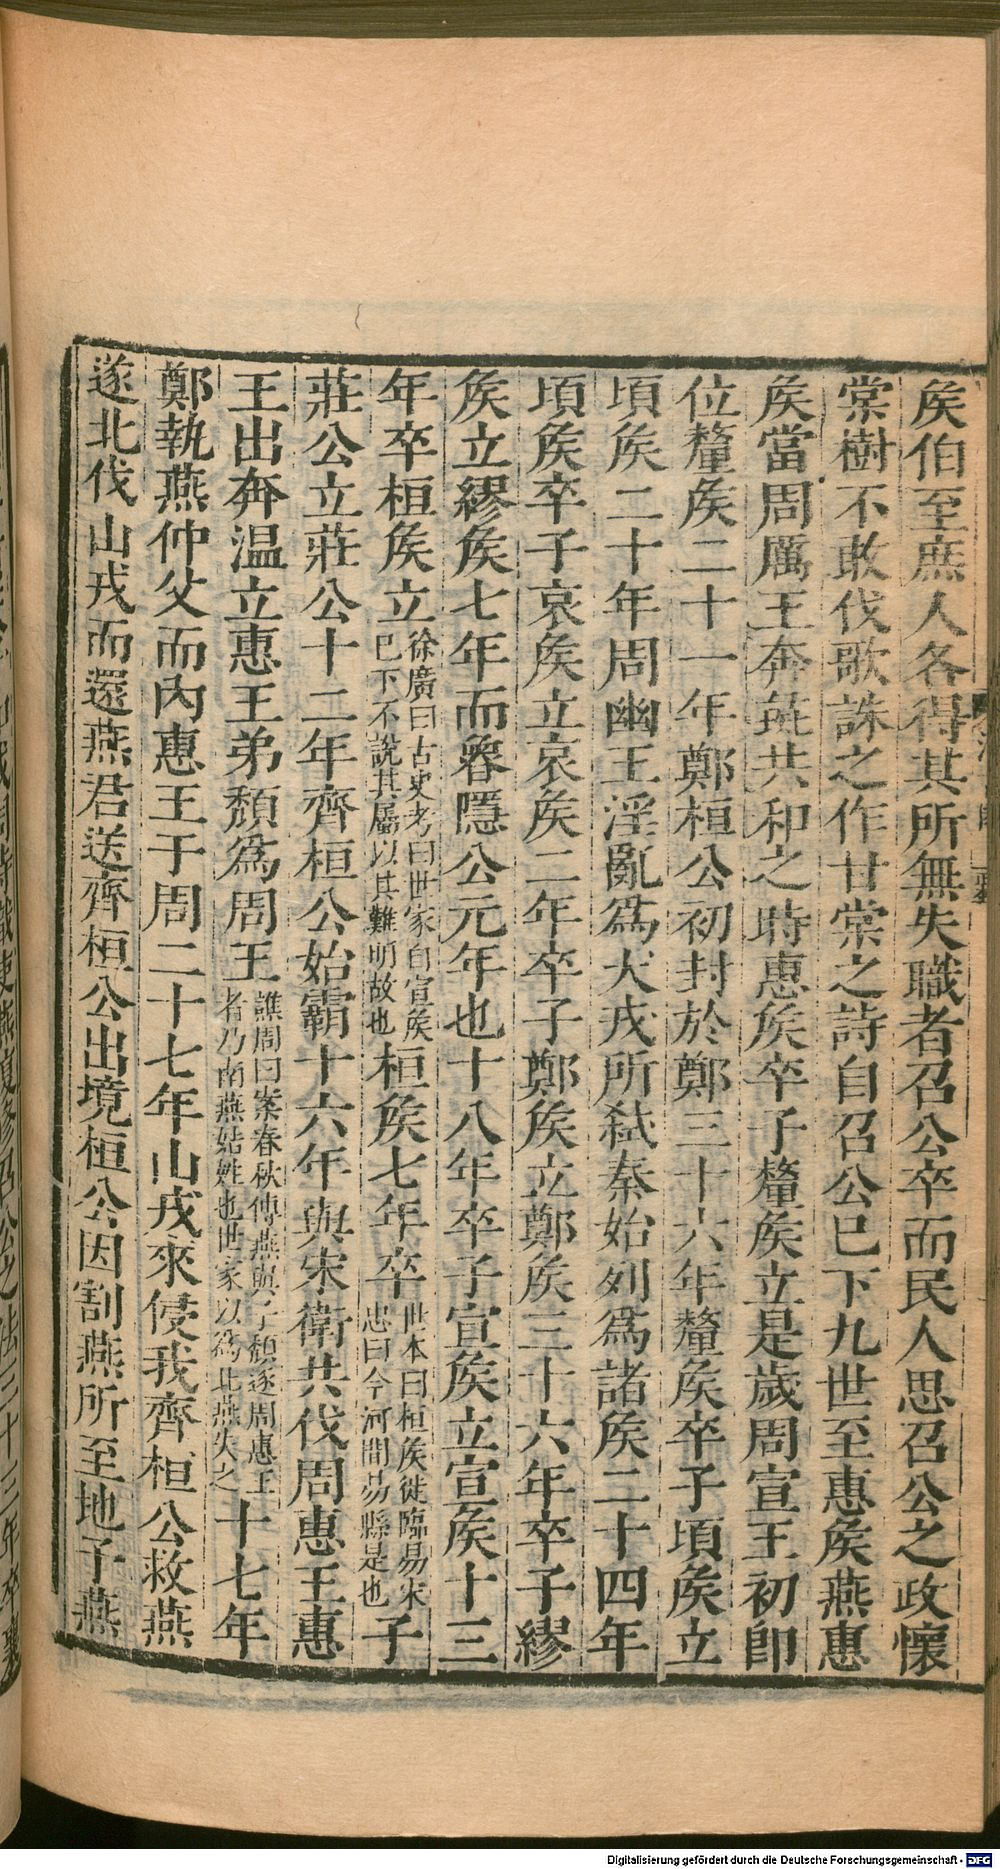 矦伯至庶人各得其所無失職者召公卒而民人思召公之政懷
棠樹不敢伐歌詠之作甘棠之詩自召公已下九世至惠矦燕惠
矦當周厲王奔彘共和之時惠矦卒子釐矦立是歲周宣王初卽
位釐矦二十一年鄭桓公初封於鄭三十六年釐矦卒子頃矦立
頃矦二十年周幽王淫亂爲犬戎所弑秦始列爲諸矦二十四年
頃矦卒子哀矦立哀矦二年卒子鄭矦立鄭矦三十六年卒子繆
矦立繆矦七年而魯隱公元年也十八年卒子宣矦立宣矦十三
年卒桓矦立徐廣曰古史考曰世家自宣矦已下不說其屬以其難明故也桓矦七年卒世本曰桓矦徙臨易宋忠曰今河間易縣是也子
莊公立莊公十二年齊桓公始霸十六年與宋衛共伐周惠王惠
王出奔温立惠王弟頹爲周王譙周曰案春秋傳燕與子頹逐周惠王者乃南燕姞姓也世家以爲北燕失之十七年
鄭執燕仲父而內惠王于周二十七年山戎來侵我齊桓公救燕
遂北伐山戎而還燕君送齊桓公出境桓公因割燕所至地予燕
Digitalisierung gefördert durch die Deutsche Forschungsgemeinschaft - DFG